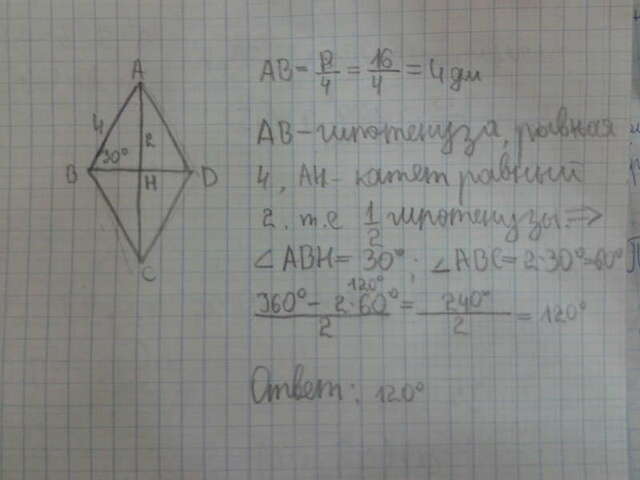 A
4
2
30°
B
H
D
C
AB = P/4 = 16/4 = 4 дм
AB - гипотенуза, равная
4, AH - катет равный
2, т.е 1/2 гипотенузы. =>
∠ABH = 30°; ∠ABC = 2·30°=60°
(360° - 2·60°)/2 = 240°/2 = 120°
120°
Ответ: 120°